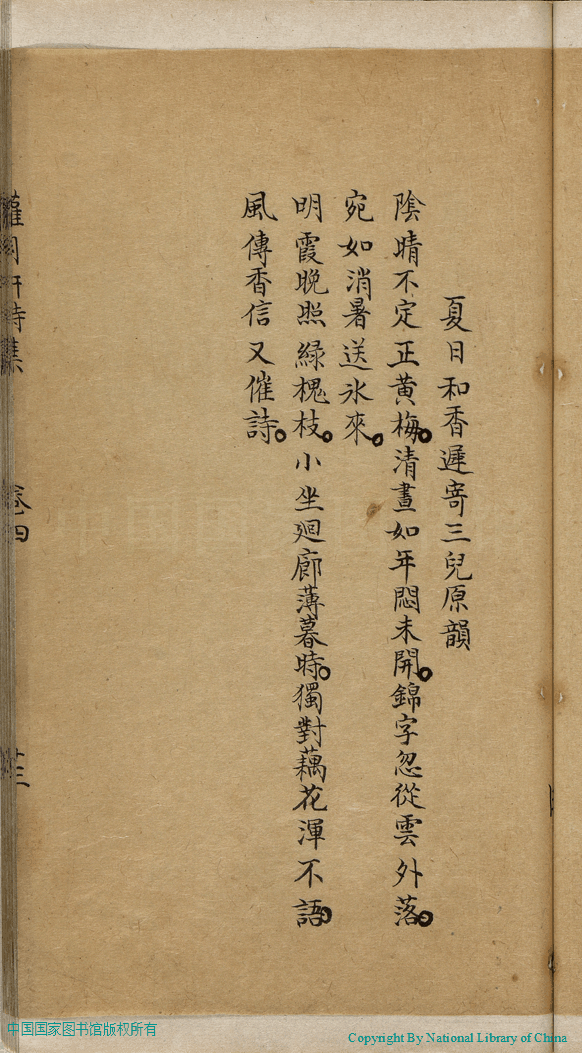 夏日和香遲寄三兒原韻
陰晴不定正黃梅。清晝如年悶未開。錦字忽從雲外落。
宛如消暑送氷來。
明霞晚照綠槐枝。小坐廻廊薄暮時。獨對藕花渾不語。
風傳香信又催詩。
詩集
卷四
中国国家图书馆版权所有
Copyright By National Library of China